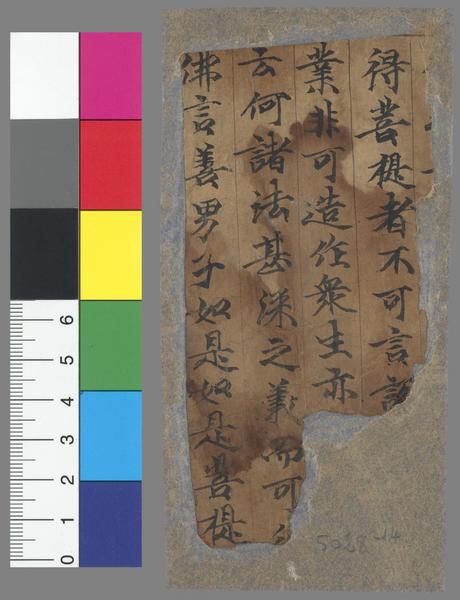 得菩提者不可言
業非可造作衆生亦
云何諸法甚深之義而可
佛言善男子如是如是菩提
6
5
4
3
2
1
0